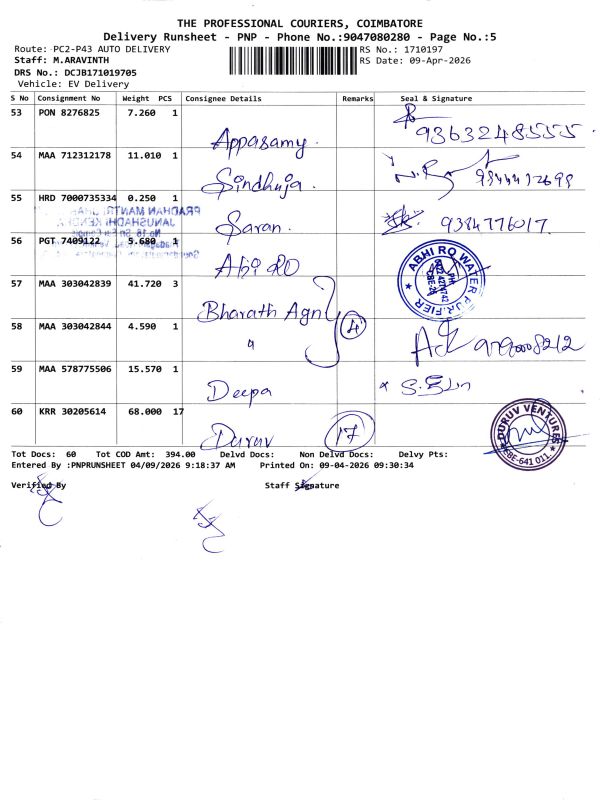 THE PROFESSIONAL COURIERS, COIMBATORE
Delivery Runsheet - PNP - Phone No.:9047080280 - Page No.:5
Route: PC2-P43 AUTO DELIVERY RS No.: 1710197
Staff: M.ARAVINTH RS Date: 09-Apr-2026
DRS No.: DCJB171019705
Vehicle: EV Delivery
S No Consignment No Weight PCS Consignee Details Remarks Seal & Signature
53 PON 8276825 7.260 1 Appasamy. 9363248555
54 MAA 712312178 11.010 1 Sindhuja.
55 HRD 7000735334 0.250 1 Saran. 9384776017.
PRADHAN MANTRI
JANUSHADHI KENDRA
56 PGT 7409122 5.680 1 Abi RO
ABHI RO WATER PURIFIER
57 MAA 303042839 41.720 3 Bharath Agny
58 MAA 303042844 4.590 1 " 4
59 MAA 578775506 15.570 1 Deepa
60 KRR 30205614 68.000 17 Duruv 17
DURUV VENTURES
CBE-641 011.
Tot Docs: 60 Tot COD Amt: 394.00 Delvd Docs: Non Delvd Docs: Delvy Pts:
Entered By :PNPRUNSHEET 04/09/2026 9:18:37 AM Printed On: 09-04-2026 09:30:34
Verified By Staff Signature